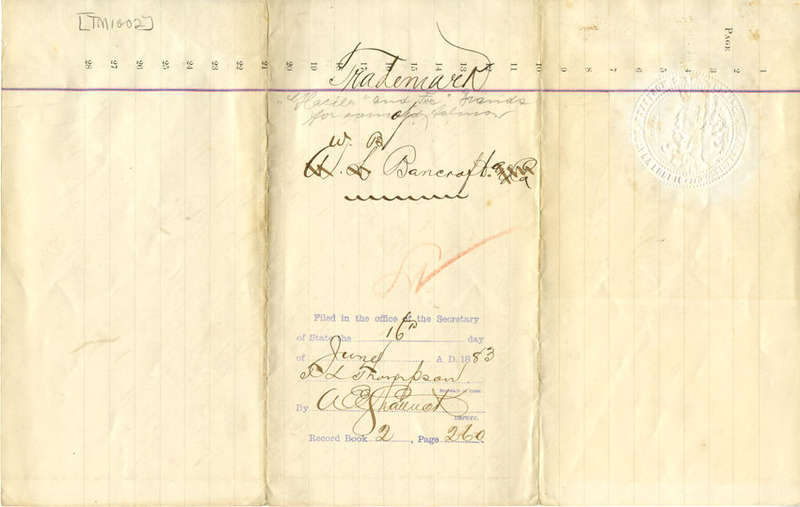 [TM1002]
PAGE 1 2 3 4 5 6 7 8 9 10 11 12 13 14 15 16 17 18 19 20 21 22 23 24 25 26 27 28
Trademark
"Glacier" and "Ice", brands
for canned salmon
of
W. B.
A. L. Bancroft &
Filed in the office of the Secretary
of State the 16th day
of June A. D. 1883
T L Thompson
Secretary of State.
By A E Shattuck
DEPUTY.
Record Book 2, Page 260